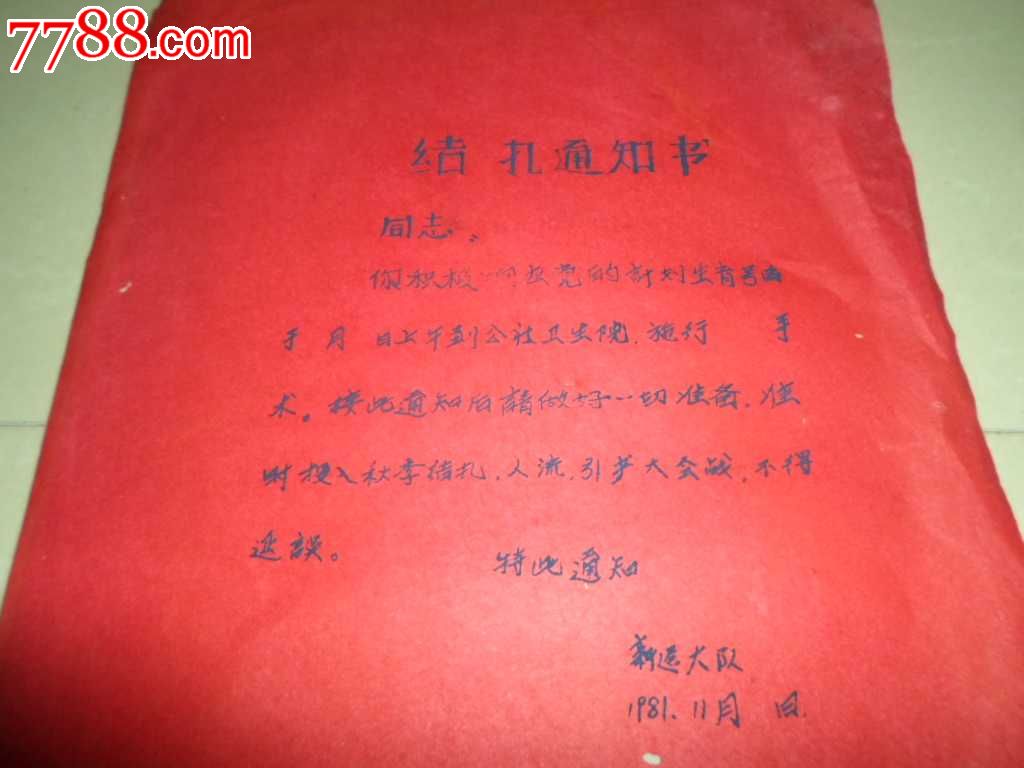 7788.com
结扎通知书
同志：
你积极响应党的計划生育号召
于 月 日上午到公社卫生院．施行 手
术。接此通知后請做好一切准备．准
时投入秋季结扎．人流．引产大会战．不得
延誤。
特此通知
大队
1981.11月 日.